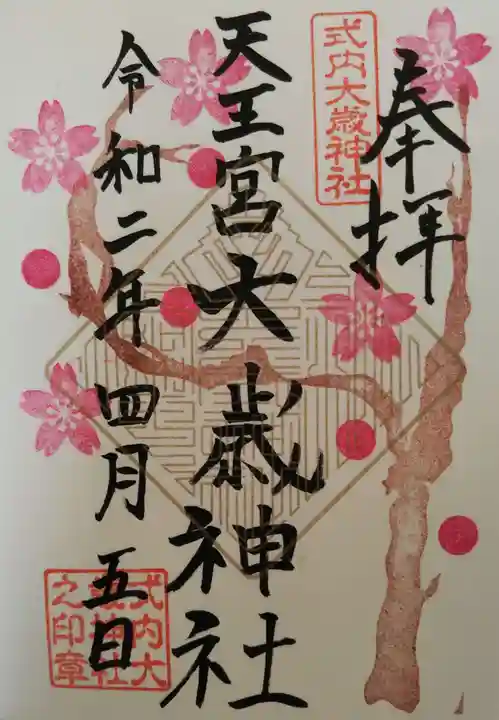 奉拝
式内大歳神社
天王宮大歳神社
令和二年四月五日
式内大
歳神社
之印章